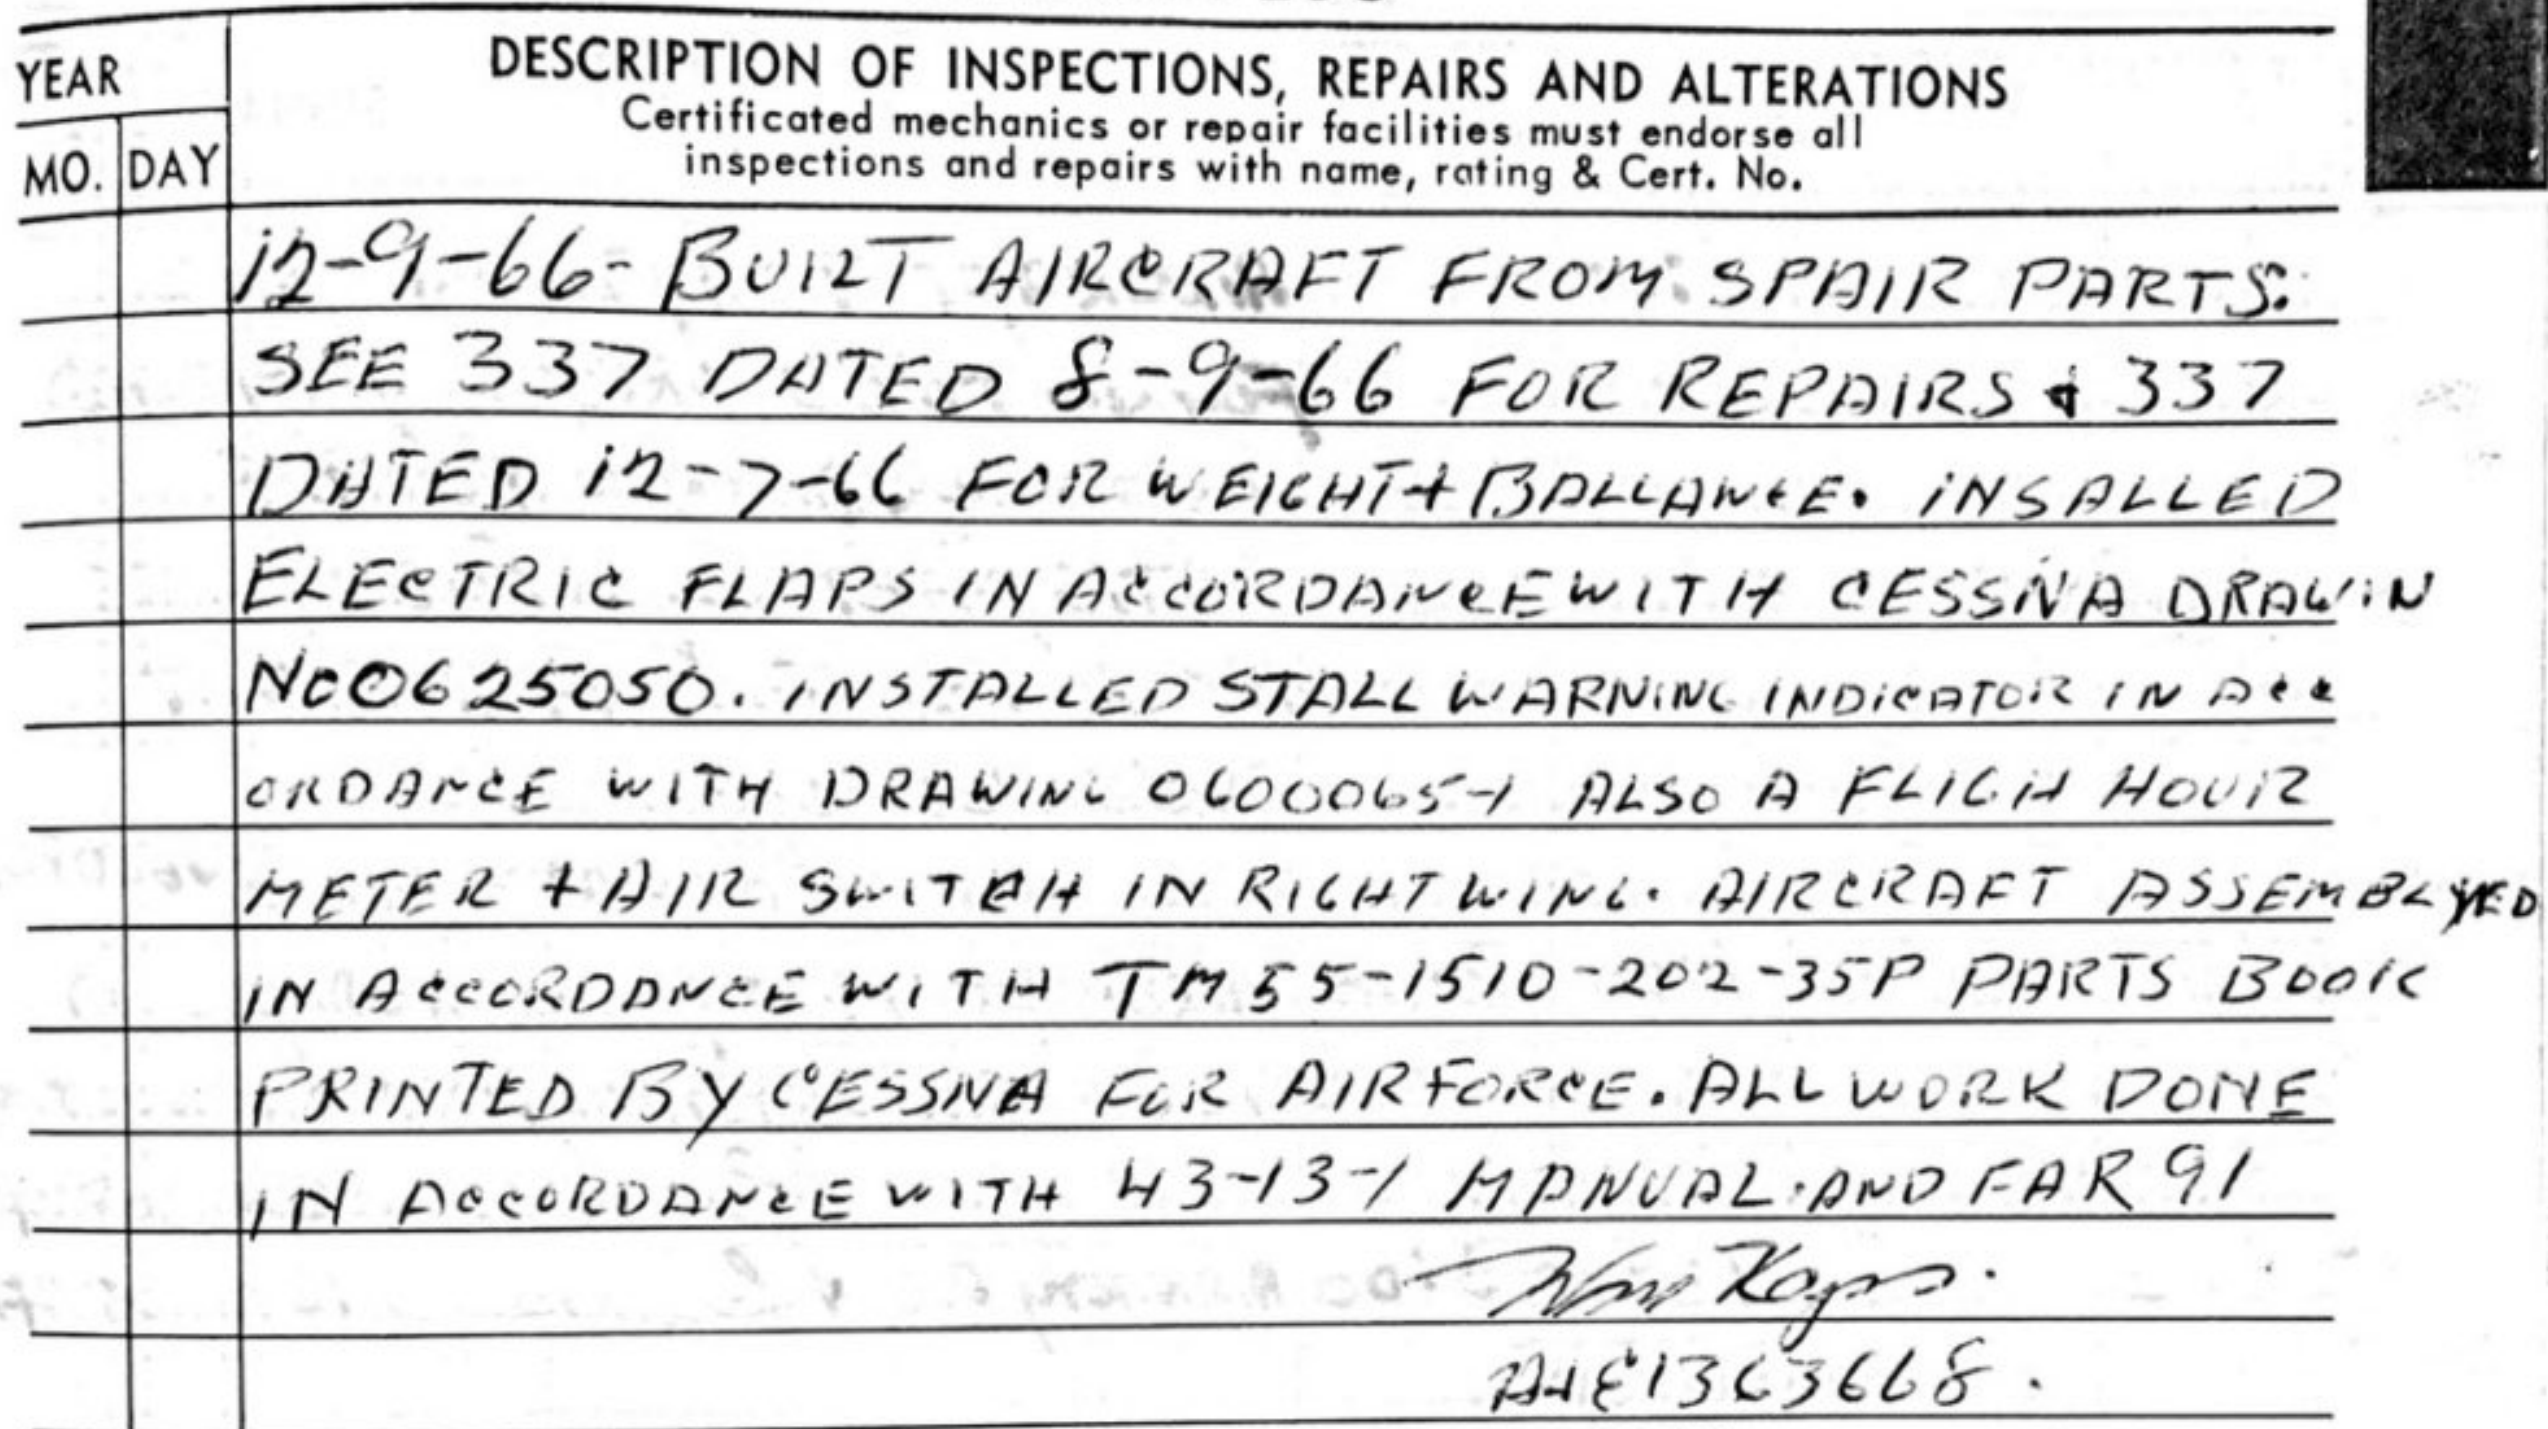 YEAR
MO. DAY
DESCRIPTION OF INSPECTIONS, REPAIRS AND ALTERATIONS
Certificated mechanics or repair facilities must endorse all
inspections and repairs with name, rating & Cert. No.
12-9-66- BUILT AIRCRAFT FROM SPAIR PARTS.
SEE 337 DATED 8-9-66 FOR REPAIRS & 337
DATED 12-7-66 FOR WEIGHT + BALLANCE. INSALLED
ELECTRIC FLAPS IN ACCORDANCE WITH CESSNA DRAWIN
NO 0625050. INSTALLED STALL WARNING INDICATOR IN ACC
ORDANCE WITH DRAWING 0600065-1 ALSO A FLIGH HOUR
METER + AIR SWITCH IN RIGHT WING. AIRCRAFT ASSEMBLYED
IN ACCORDANCE WITH TM 55-1510-202-35P PARTS BOOK
PRINTED BY CESSNA FOR AIRFORCE. ALL WORK DONE
IN ACCORDANCE WITH 43-13-1 MANUAL. AND FAR 91
A+E 1363668.